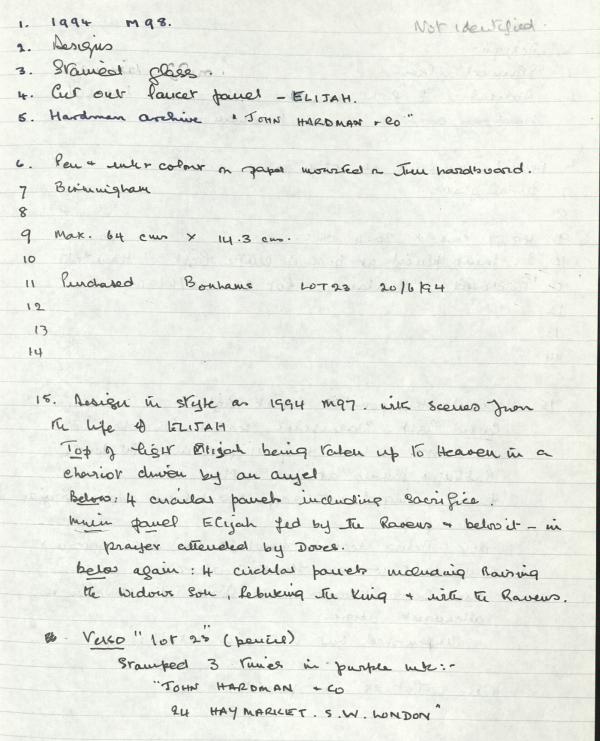 Not identified.
1. 1994 M98.
2. Designs
3. Stained glass.
4. Cut out lancet panel - ELIJAH.
5. Hardman archive "JOHN HARDMAN + CO"
6. Pen + ink + colour on paper mounted on hardboard.
7 Birmingham
8
9 Max. 64 cms × 14.3 cms.
10
11 Purchased Bonhams LOT 23 20/6/94
12
13
14
15. Design in style as 1994 M97. with scenes from
the life of ELIJAH
Top of light Elijah being taken up to Heaven in a
chariot driven by an angel
Below: 4 circular panels including Sacrifice.
Main panel Elijah fed by the Ravens + below it - in
prayer attended by Doves.
below again: 4 circular panels including Raising
the Widows Son, Rebuking the King + with the Ravens.
Verso "lot 23" (pencil)
Stamped 3 times in purple ink:-
"JOHN HARDMAN + CO
24 HAYMARKET. S.W. LONDON"